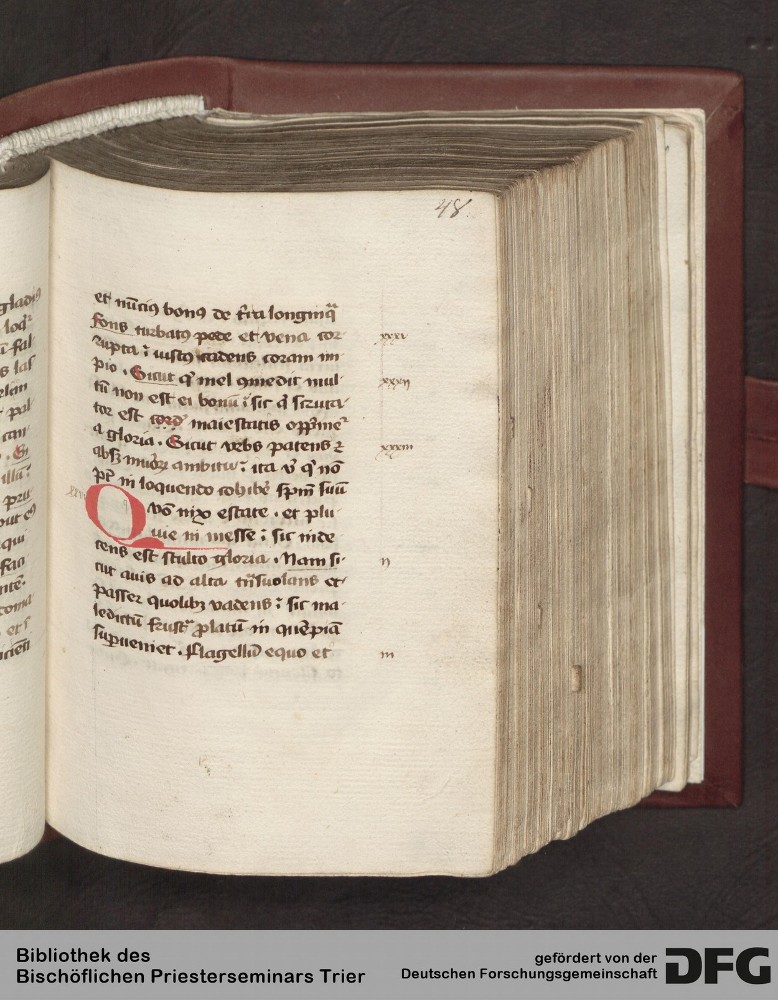 48
et nūciꝯ bonꝯ de t̄ra longinqᷓ
fons turbatꝯ pede et vena cor
rupta ⁊ iustꝯ cadens coram im
pio . Sicut qͥ mel ꝯmedit mul
tū non est ei bonū ⁊ sic qͥ scruta
tor est maiestatis opp̄met᷑
a gloria . Sicut vrbs patens ⁊
absꝫ muroꝝ ambitu ⁊ ita vͥ qͥ nō
pt̄ in loquendo cohibe᷑ spm̄ suū
Quō nix estate . et plu
uie in messe ⁊ sic inde
cens est stulto gloria . Nam si
cut auis ad alta trāsuolans et
passer quolibꝫ vadens ⁊ sic ma
ledictū frustᷓ ꝓlatū in quēpiā
supueniet . flagellū equo et
xxxi
xxxii
xxxiii
xxvi
ii
iii
Bibliothek des
Bischöflichen Priesterseminars Trier
gefördert von der
Deutschen Forschungsgemeinschaft
DFG